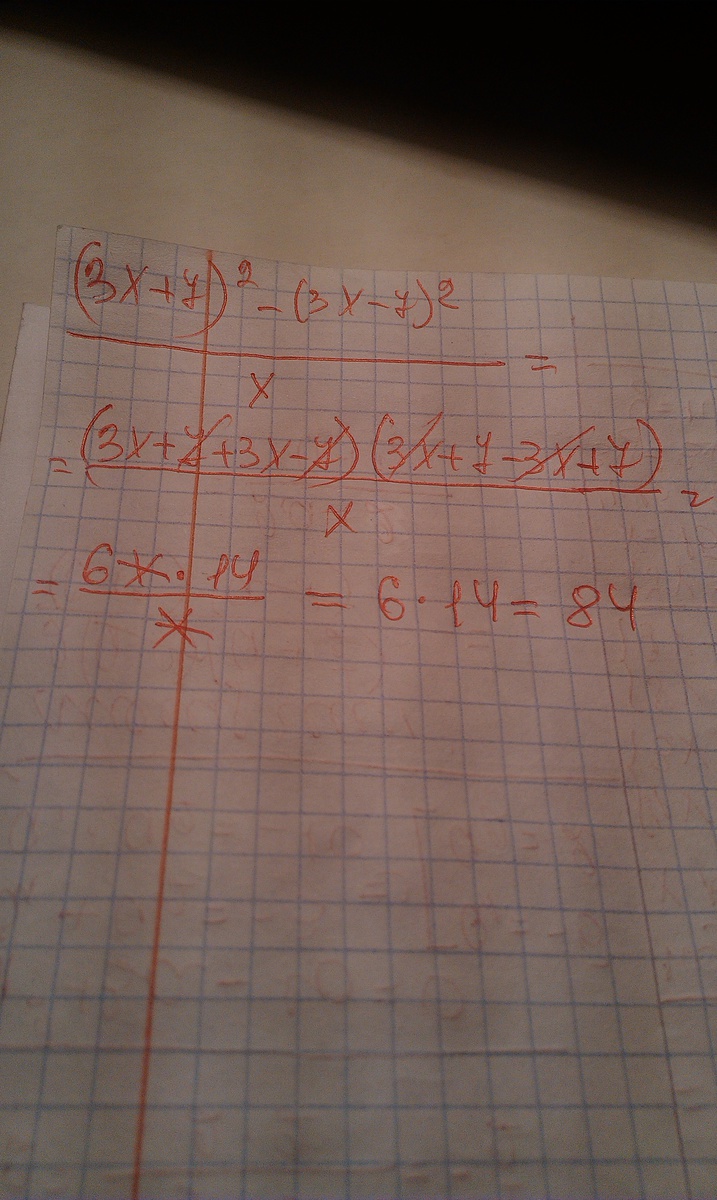 (3x+7)² - (3x-7)² =
x
= (3x+7+3x-7)(3x+7-3x+7) =
x
= 6x · 14 = 6 · 14 = 84
x